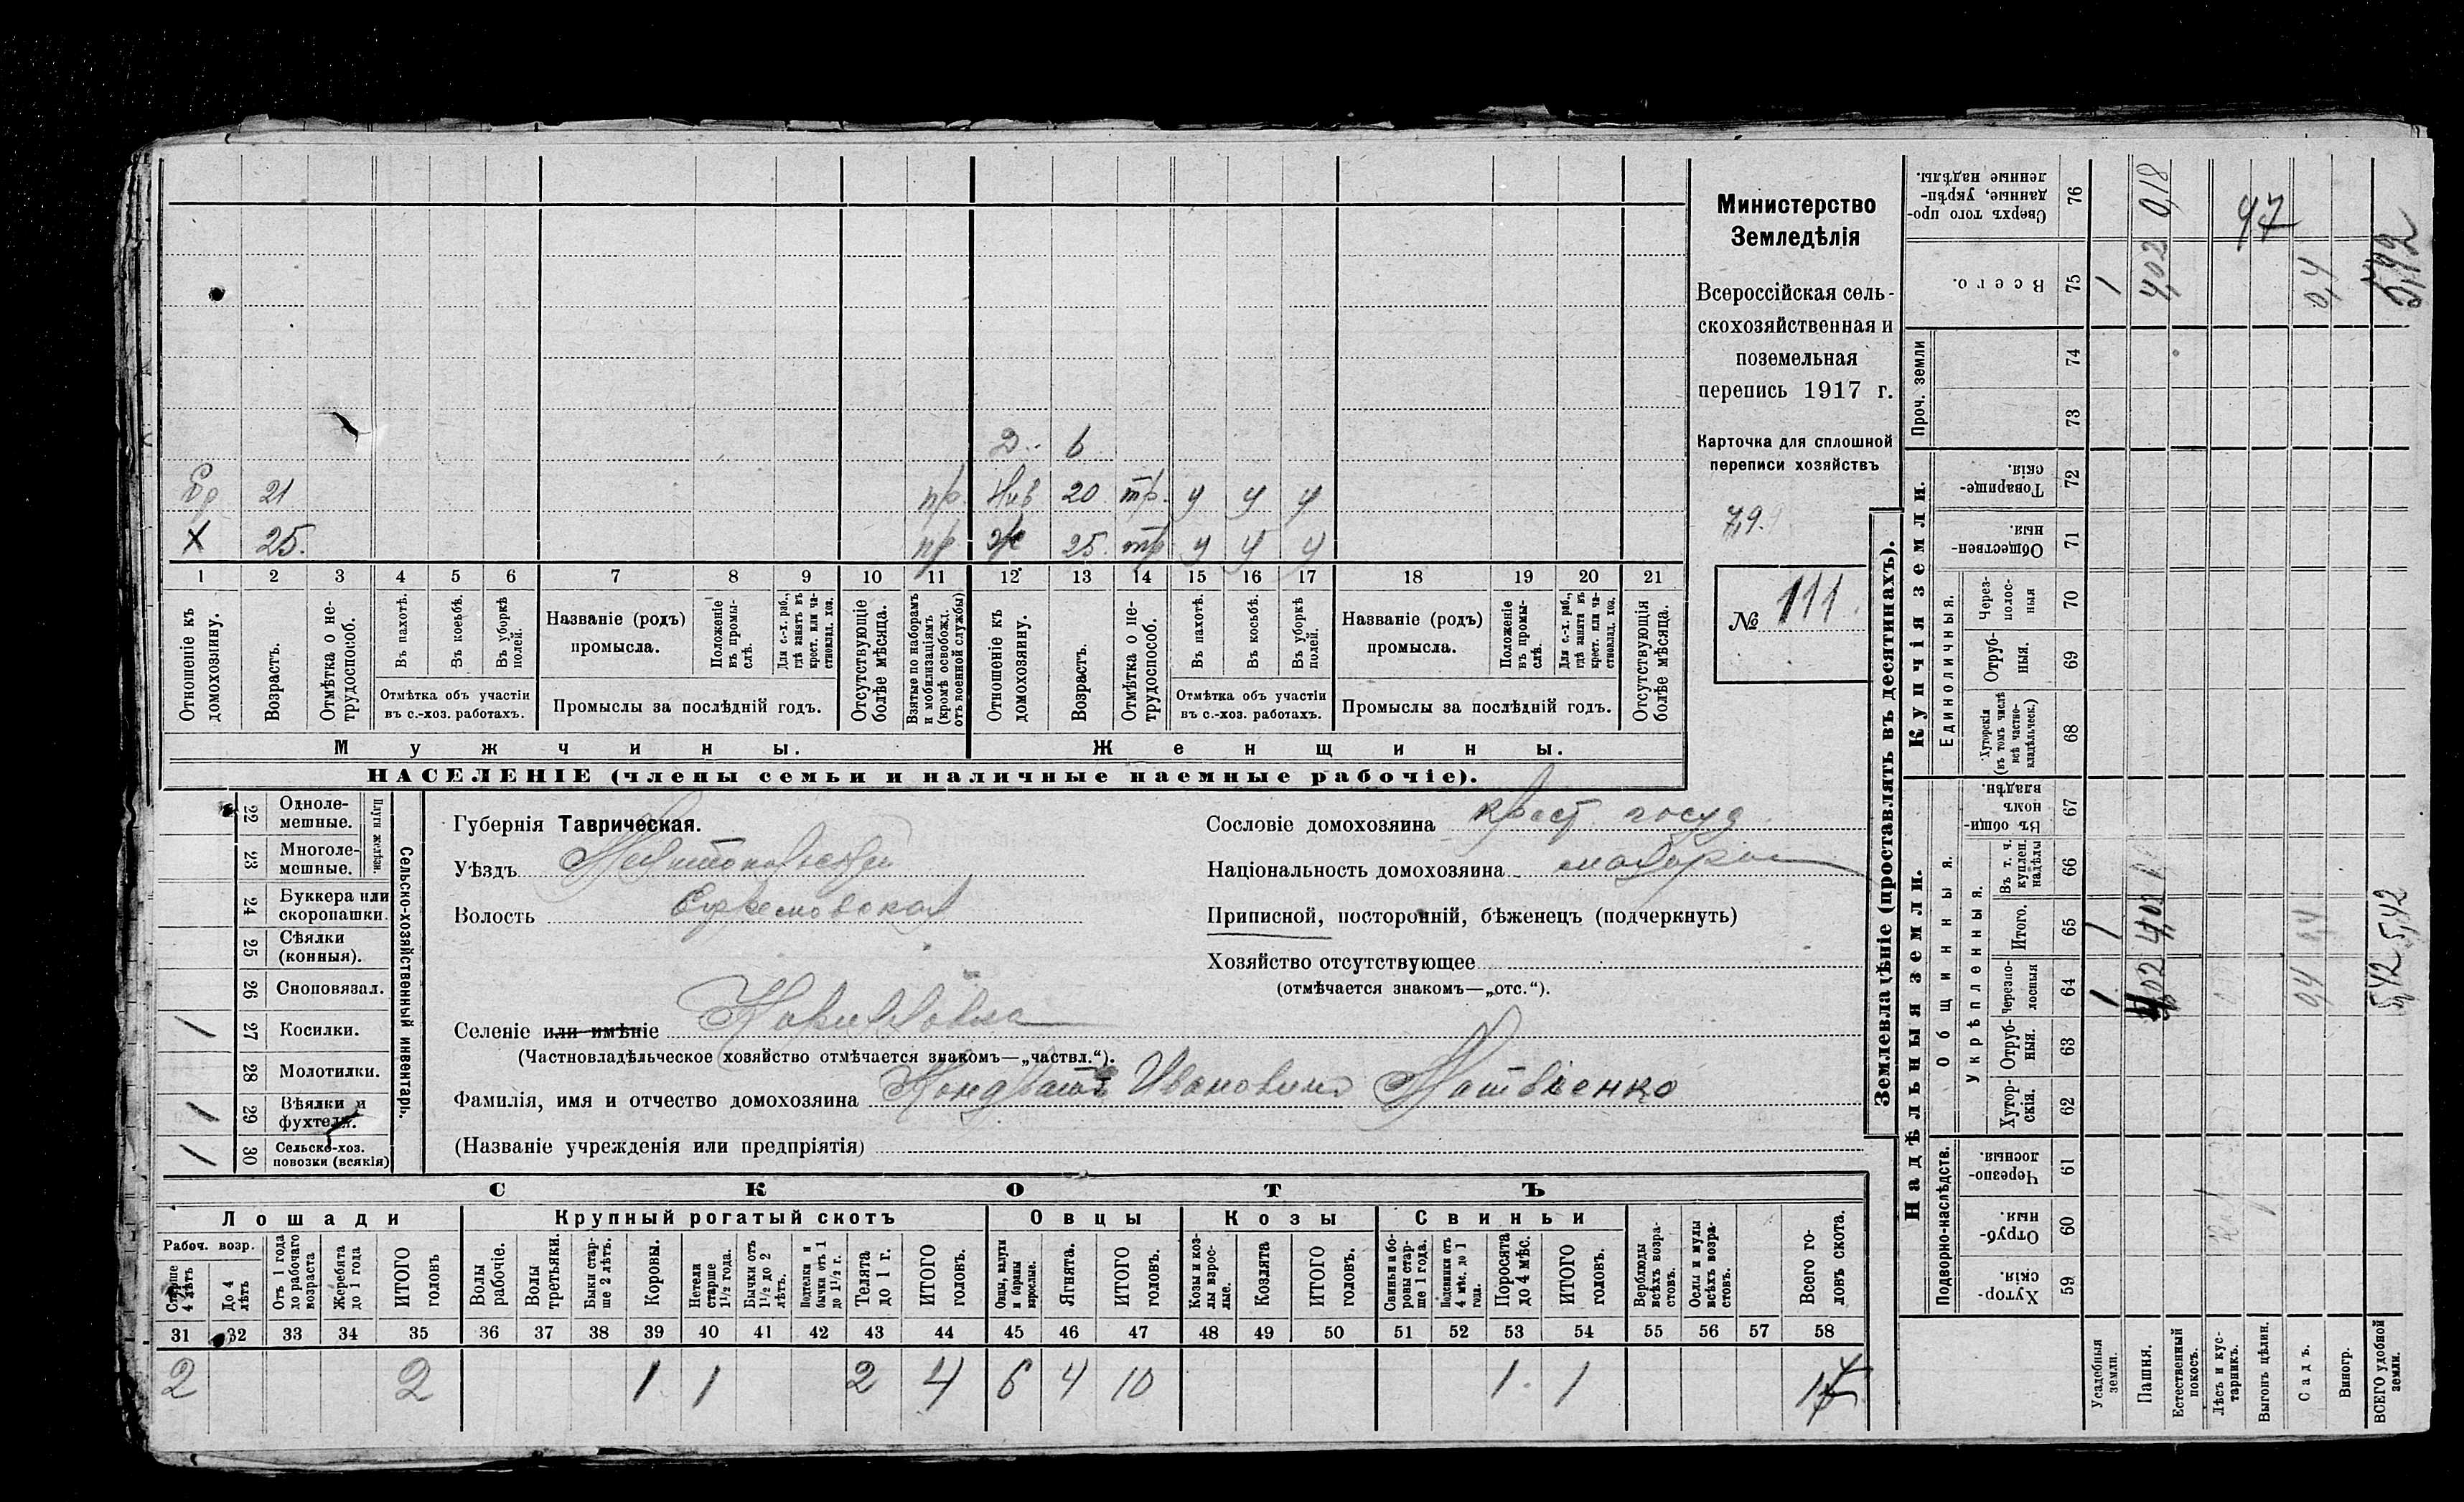 Д. 6
Бр 21 пр. Нив 20 тр. у у у
Х 25. пр ж 25. тр у у у
1 2 3 4 5 6 7 8 9 10 11 12 13 14 15 16 17 18 19 20 21
Отношеніе къ домохозяину.
Возрастъ.
Отмѣтка о нетрудоспособ.
Въ пахотѣ.
Въ косьбѣ.
Въ уборкѣ полей.
Отмѣтка объ участіи въ с.-хоз. работахъ.
Названіе (родъ) промысла.
Положеніе въ промыслѣ.
Для с.-х. раб., гдѣ занятъ въ крест. или частновлад. хоз.
Промыслы за послѣдній годъ.
Отсутствующіе болѣе мѣсяца.
Взятые по наборамъ и мобилизаціямъ (кромѣ освобожд. отъ военной службы)
Отношеніе къ домохозяину.
Возрастъ.
Отмѣтка о нетрудоспособ.
Въ пахотѣ.
Въ косьбѣ.
Въ уборкѣ полей.
Отмѣтка объ участіи въ с.-хоз. работахъ.
Названіе (родъ) промысла.
Положеніе въ промыслѣ.
Для с.-х. раб., гдѣ занята въ крест. или частновлад. хоз.
Промыслы за послѣдній годъ.
Отсутствующія болѣе мѣсяца.
Мужчины. Женщины.
НАСЕЛЕНІЕ (члены семьи и наличные наемные рабочіе).
Министерство
Земледѣлія
Всероссійская сель-
скохозяйственная и
поземельная
перепись 1917 г.
Карточка для сплошной
переписи хозяйствъ
7,9.
№ 111.
22 Одноле-мешные.
23 Многоле-мешные.
Плуги желѣзн.
24 Буккера или скоропашки.
25 Сѣялки (конныя).
26 Сноповязал.
1 27 Косилки.
28 Молотилки.
1 29 Вѣялки и фухтеля.
1 30 Сельско-хоз. повозки (всякія)
Сельско-хозяйственный инвентарь.
Губернія Таврическая.
Уѣздъ
Волость
Селеніе или имѣніе
(Частновладѣльческое хозяйство отмѣчается знакомъ—„частвл.“).
Фамилія, имя и отчество домохозяина Кондратъ Ивановичъ Матвіенко
(Названіе учрежденія или предпріятія)
Сословіе домохозяина крест госуд
Національность домохозяина малорос
Приписной, посторонній, бѣженецъ (подчеркнуть)
Хозяйство отсутствующее
(отмѣчается знакомъ—„отс.“).
СКОТЪ
Лошади Крупный рогатый скотъ Овцы Козы Свиньи
Рабоч. возр.
Старше 4 лѣтъ
До 4 лѣтъ
Отъ 1 года до рабочаго возраста
Жеребята до 1 года
ИТОГО головъ
Волы рабочіе.
Волы третьяки.
Быки старше 2 лѣтъ.
Коровы.
Нетели старше 1½ года.
Бычки отъ 1½ до 2 лѣтъ.
Подтелки и бычки отъ 1 до 1½ г.
Телята до 1 г.
ИТОГО головъ.
Овцы, валухи и бараны взрослые.
Ягнята.
ИТОГО головъ.
Козы и козлы взрослые.
Козлята
ИТОГО головъ.
Свиньи и боровы старше 1 года.
Подсвинки отъ 4 мѣс. до 1 года.
Поросята до 4 мѣс.
ИТОГО головъ.
Верблюды всѣхъ возрастовъ.
Ослы и мулы всѣхъ возрастовъ.
Всего головъ скота.
31 32 33 34 35 36 37 38 39 40 41 42 43 44 45 46 47 48 49 50 51 52 53 54 55 56 57 58
2 2 1 1 2 4 6 4 10 1 1 17
Землевладѣніе (проставлять въ десятинахъ).
Надѣльныя земли. Купчія земли. Проч. земли
Подворно-наслѣдств.
Общинныя.
Укрѣпленныя.
Единоличныя.
Хуторскія 59
Отрубныя 60
Черезполосныя. 61
Хуторскія. 62
Отрубныя. 63
Черезполосныя 64
Итого. 65
Въ т. ч. куплен. надѣлы 66
Въ общинномъ владѣн. 67
Хуторскія (въ томъ числѣ всѣ частновладѣльческ.) 68
Отрубныя. 69
Черезполосныя 70
Общественныя. 71
Товарищескія. 72
73
74
Всего. 75
Сверхъ того проданные, укрѣпленные надѣлы. 76
Усадебныя земли. 1 1 1
Пашня. 4,02 4,02 4,02 0,18
Естественный покосъ.
Лѣсъ и кустарникъ.
Выгонъ цѣлин. 97
Садъ. 0,4 0,4 0,4
Виногр.
ВСЕГО удобной земли. 5,42 5,42 5,42